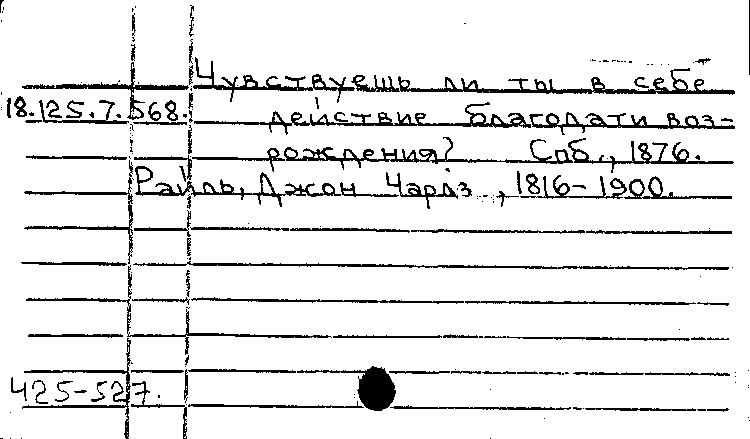 Чувствуешь ли ты в себе
18.125.7.568. действие благодати воз-
рождения? Спб., 1876.
Райль, Джон Чарлз, 1816-1900.
425-527.